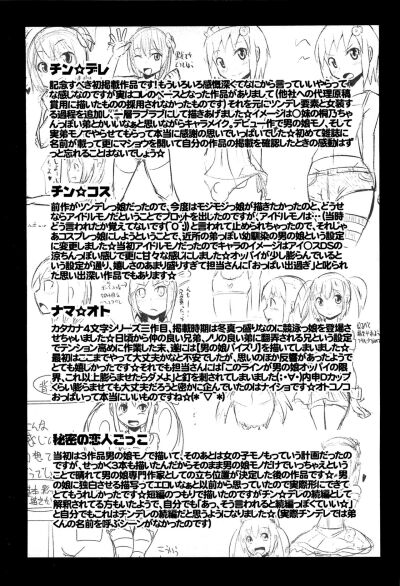 チン☆デレ
記念すべき初掲載作品です!もういろいろ感慨深くてなにから言っていいやらって
な感じなのですが実はコレのベースとなった作品がありまして(他社への代理原稿
賞用に描いたものの採用されなかったものです)それを元にツンデレ要素と女装す
る過程を追加し、一層ラブラブして描きあげました☆イメージは〇妹の桐乃ちゃ
んっぽい弟とかいいなぁと思いながらキャラメイク。デビュー作で男の娘モノ、そして
実弟モノでやらせてもらって本当に感謝の思いでいっぱいでした☆初めて雑誌に
名前が載って更にマショウを開いて自分の作品の掲載を確認したときの感動はず
っと忘れることはないでしょう☆
チン☆コス
前作がツンデレっ娘だったので、今度はモジモジっ娘が描きたかったのと、どうせ
ならアイドルモノということでプロットを出したのですが、アイドルモノは…(当時
どう言われたか覚えてないです)と言われて止められちゃったので、それじゃ
あコスプレっ娘にしようということで、近所の弟っぽい幼馴染の男の娘という設定
に変更しました☆当初アイドルモノだったのでキャラのイメージはアイ〇スDSの
涼ちんっぽい感じで更に甘々な感じにしました☆オッパイが少し膨らんでいると
いう設定が通り、嬉しさのあまり盛りすぎて担当さんに「おっぱい出過ぎ」と叱られ
た思い出深い作品でもあります☆
ナマ☆オト
カタカナ4文字シリーズ三作目、掲載時期は冬真っ盛りなのに競泳っ娘を登場さ
せちゃいました☆日頃から仲の良い兄弟、ノリの良い弟に翻弄される兄という設定で
テンション高めに作業した末、遂には【男の娘パイズリ】を描いてしまいました☆
最初はここまでやって大丈夫かなと不安でしたが、思いのほか反響があったようで
とても嬉しかったです☆それでも担当さんには「このラインが男の娘オッパイの限
界、これ以上膨らませたらダメよ」と釘を刺されてしまいました(;・∀・)内申Dカップ
くらい膨らませても大丈夫だろうと密かに企んでいたのはナイショです☆オトコノコ
おっぱいって本当にいいものですね(*´▽`*)
秘密の恋人ごっこ
当初は3作品男の娘モノで描いて、そのあとは女の子モノもっていう計画だったの
ですが、せっかく3本も描いたんだからそのまま男の娘モノだけでいっちゃえという
ことで晴れて男の娘専門作家としての立ち位置が決定した後の作品です☆男の
娘に独白させる描写ってエロいなぁと以前から思っていたので実際形にできて
とてもうれしかったです☆短編のつもりで描いたのですがチン☆デレの続編として
解釈されてる方もいたようで、自分でも「あっ、そう言われると続編っぽくていい☆」
と自分でもこれはチンデレの続編だと思うようになりました☆(実際チンデレでは弟
くんの名前を呼ぶシーンがなかったのです)